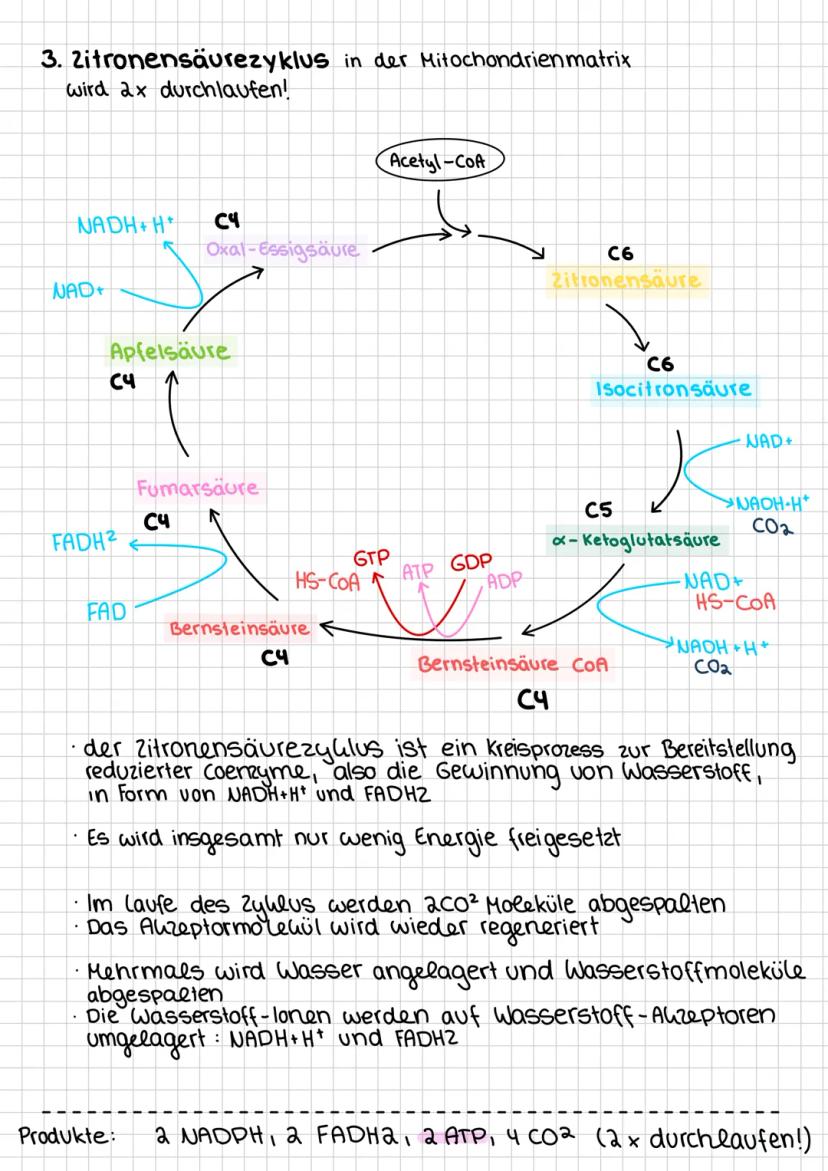 3. Zitronensäurezyklus in der Mitochondrienmatrix
wird 2x durchlaufen!
Acetyl-CoA
NADH+H⁺
C4
Oxal-Essigsäure
C6
Zitronensäure
NAD+
Apfelsäure
C4
C6
Isocitronsäure
NAD+
NADH+H⁺
CO₂
Fumarsäure
C4
C5
α-Ketoglutatsäure
FADH²
FAD
GTP
HS-CoA
ATP
GDP
ADP
NAD+
HS-CoA
NADH+H⁺
CO₂
Bernsteinsäure
C4
Bernsteinsäure CoA
C4
· der Zitronensäurezyklus ist ein Kreisprozess zur Bereitstellung
reduzierter Coenzyme, also die Gewinnung von Wasserstoff,
in Form von NADH+H⁺ und FADH2
· Es wird insgesamt nur wenig Energie freigesetzt
· Im Laufe des Zyklus werden 2CO² Moleküle abgespalten
· Das Akzeptormolekül wird wieder regeneriert
· Mehrmals wird Wasser angelagert und Wasserstoffmoleküle
abgespalten
· Die Wasserstoff-Ionen werden auf Wasserstoff-Akzeptoren
umgelagert: NADH+H⁺ und FADH2
Produkte: 2 NADPH, 2 FADH2, 2 ATP, 4 CO2 (2x durchlaufen!)